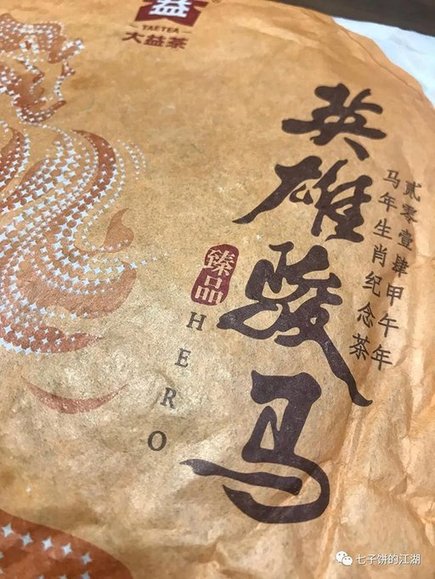 益
TAETEA
大益茶
英雄骏马
贰零壹肆甲午年
马年生肖纪念茶
臻品
HERO
七子饼的江湖